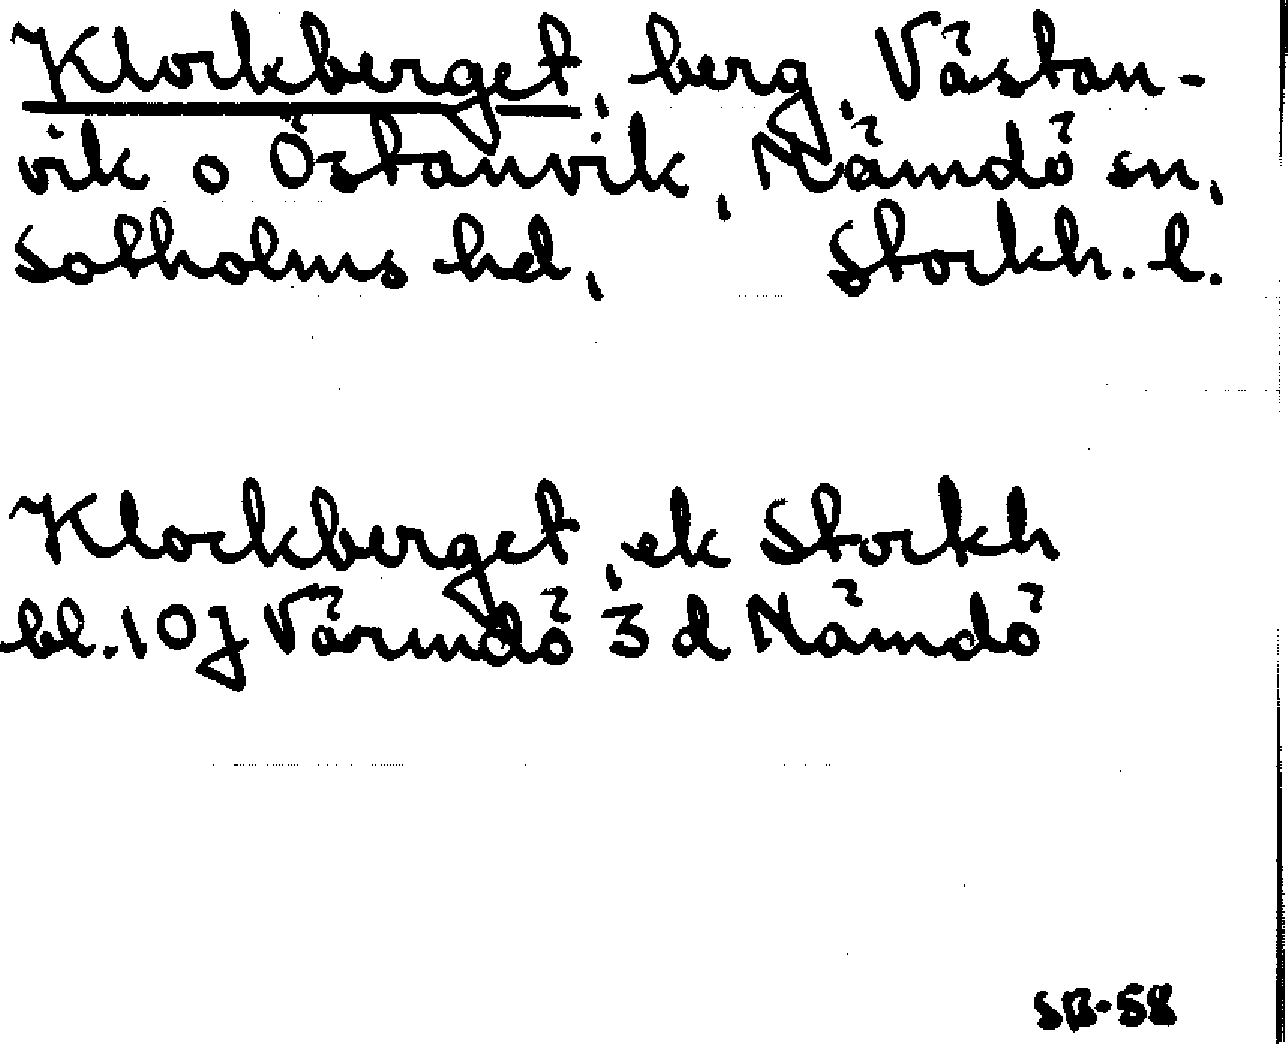 Klockberget, berg, Västan-
vik o Östanvik, Nämdö sn,
Sotholms hd, Stockh. l.
Klockberget, ek Stockh
bl. 10J Värmdö 3 d Nämdö
SB-58